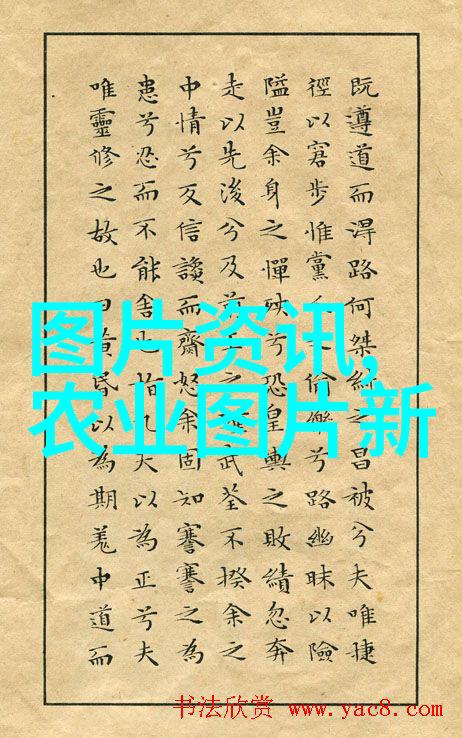 既遵道而淂路何桀紂之昌被兮夫唯捷
徑以窘步惟黨人偷樂兮路幽昧以險
隘豈余身之憚殃兮恐皇輿之敗績忽奔
走以先後兮及前王之武荃不揆余之
中情兮反信讒而齋怒余固知謇謇之為
患兮忍而不能舍也指九天以為正兮夫
唯靈修之故也曰黃昏以為期羌中道而
图片资讯,
农业图片新
书法欣赏 www.yac8.com